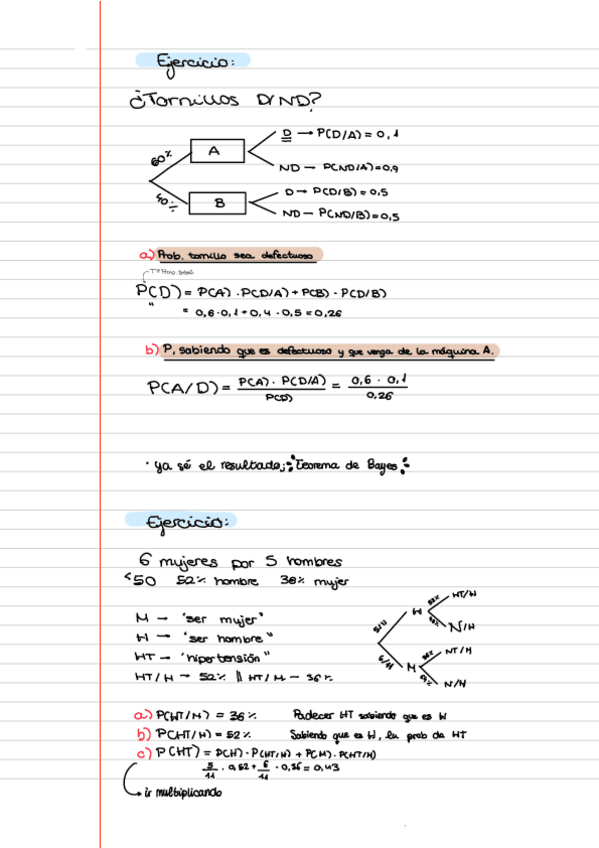 Ejercicio:
¿Tornillos D/ND?
60%
A
D → P(D/A) = 0,1
ND — P(ND/A)=0,9
40%
B
D → P(D/B) = 0,5
ND — P(ND/B) = 0,5
a) Prob. tornillo sea defectuoso
P(D) = P(A) · P(D/A) + P(B) · P(D/B)
" = 0,6 · 0,1 + 0,4 · 0,5 = 0,26
b) P, sabiendo que es defectuoso y que venga de la máquina A.
P(A/D) = P(A) · P(D/A) / P(D) = 0,6 · 0,1 / 0,26
· ya sé el resultado; Teorema de Bayes
Ejercicio:
6 mujeres por 5 hombres
<50 52% hombre 36% mujer
M — "ser mujer"
H — "ser hombre"
HT — "hipertensión"
HT/H → 52% || HT/M — 36%
5/11
H
52%
HT/H
N/H
6/11
M
HT/M
N/H
a) P(HT/M) = 36% Padecer HT sabiendo que es M
b) P(HT/H) = 52% Sabiendo que es H, la prob da HT
c) P(HT) = P(H) · P(HT/H) + P(M) · P(HT/M)
5/11 · 0,52 + 6/11 · 0,36 = 0,43
→ ir multiplicando